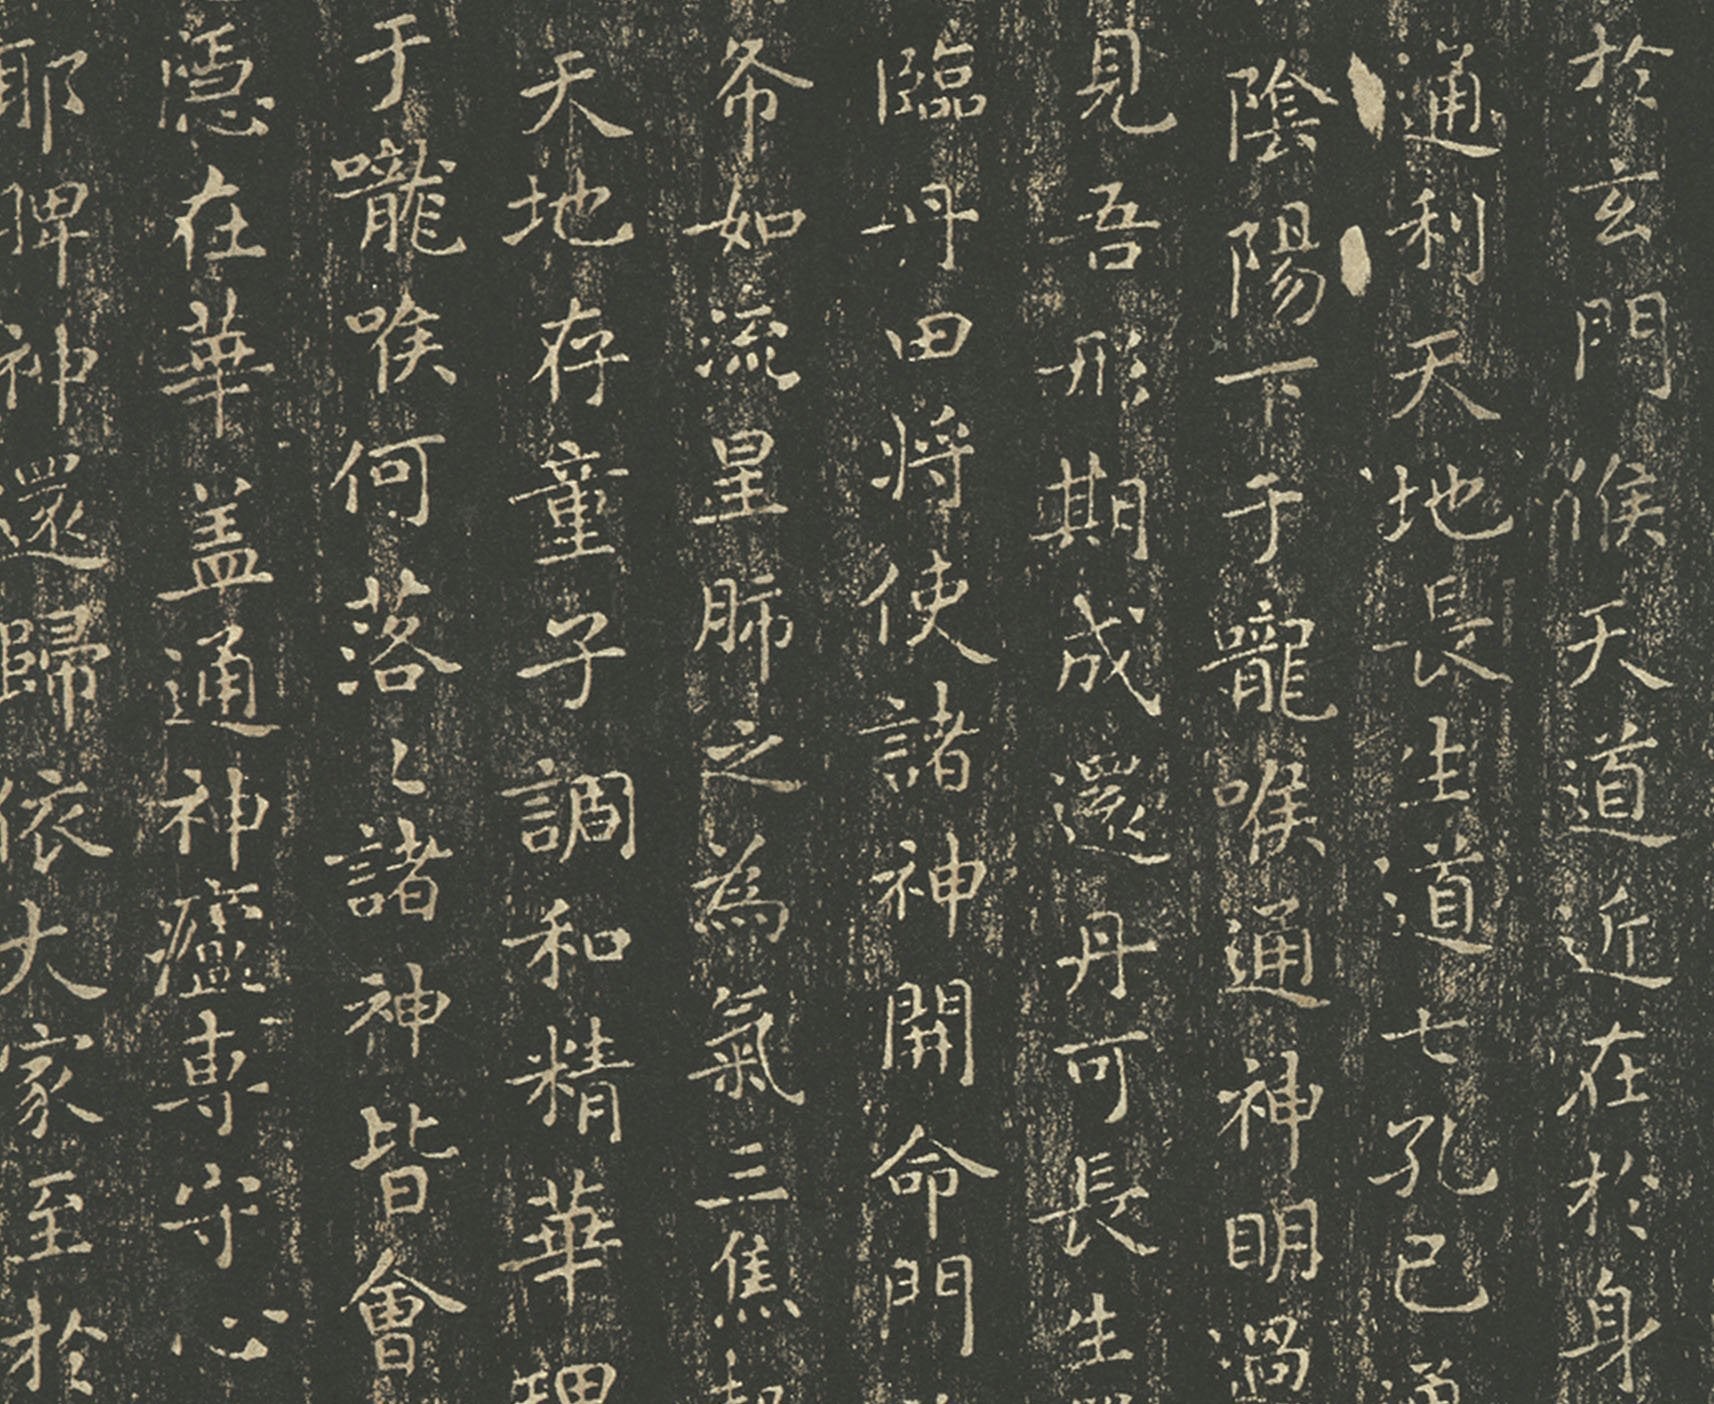 於玄門候天道近在於身
通利天地長生道七孔已通
陰陽下于嚨喉通神明過
見吾形期成還丹可長生
臨丹田將使諸神開命門
希如流星肺之為氣三焦起
天地存童子調和精華理
于嚨喉何落〻諸神皆會
隱在華盖通神廬專守心
耶睥神還歸依大家至於